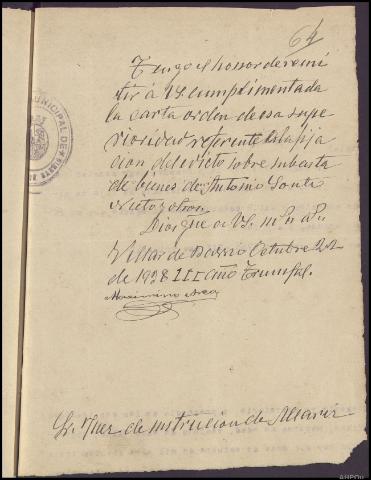 64
Tengo el honor de remi
tir á V.S. cumplimentada
la carta orden de esa supe
rioridad referente á la fija
cion del edicto sobre subasta
de bienes de Antonio
Nieto y otros.
Dios gue a V.S. m. a.
Villar de Barrio Octubre 22
de 1938 III año Triunfal.
Sr. Juez de instrucción de Allariz
MUNICIPAL DE
AHPOu